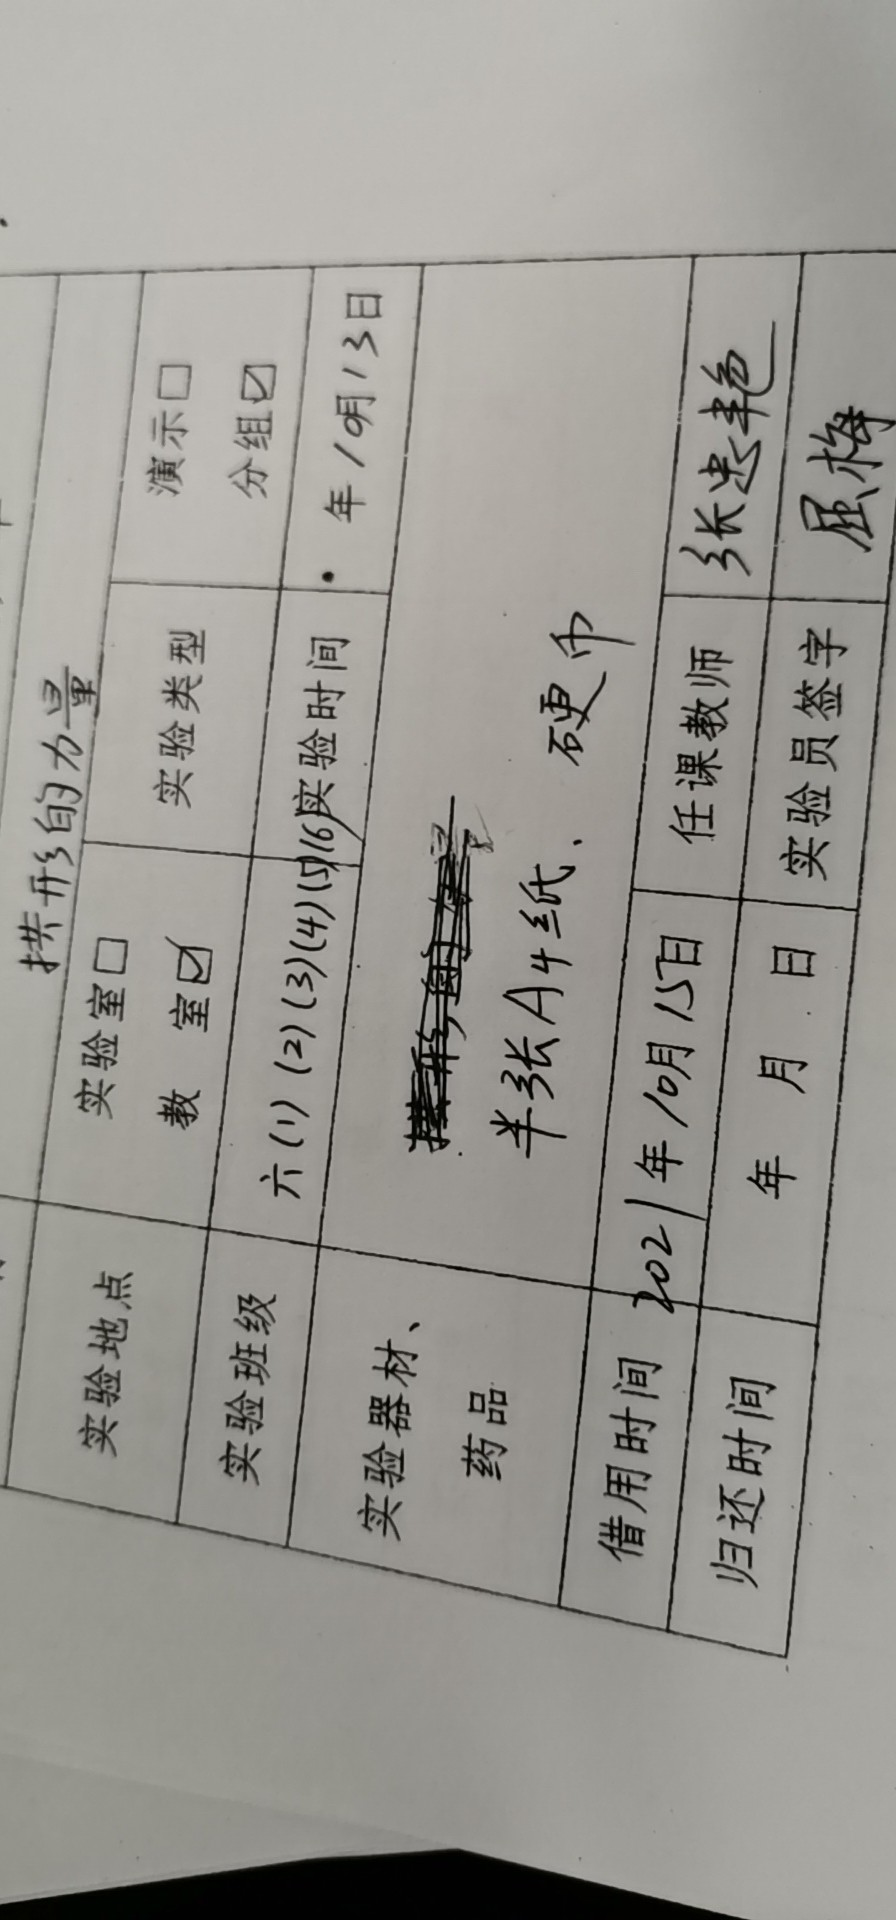 拱形的力量
实验地点 实验室□ 实验类型 演示□
教 室☑ 分组☑
实验班级 六(1)(2)(3)(4)(5)(6) 实验时间 年10月13日
实验器材、
药品 半张A4纸、硬币
借用时间 2021年10月15日 任课教师 张忠艳
归还时间 年 月 日 实验员签字 屈梅